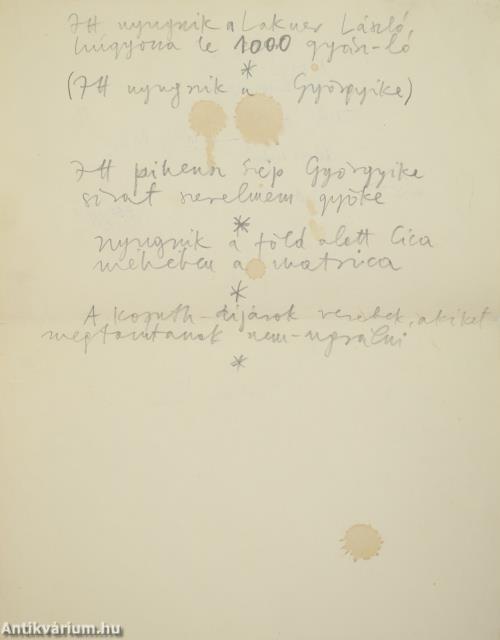 Itt nyugszik a Lakner László
húgyozza le 1000 gyász-ló
*
(Itt nyugszik a Györgyike)
Itt pihensz szép Györgyike
sírat szerelmem gyöke
*
nyugszik a föld alatt Cica
méhében a matrica
*
A Kossuth-díjasok verebek, akiket
megtanítanak nem-ugrálni
*
Antikvárium.hu